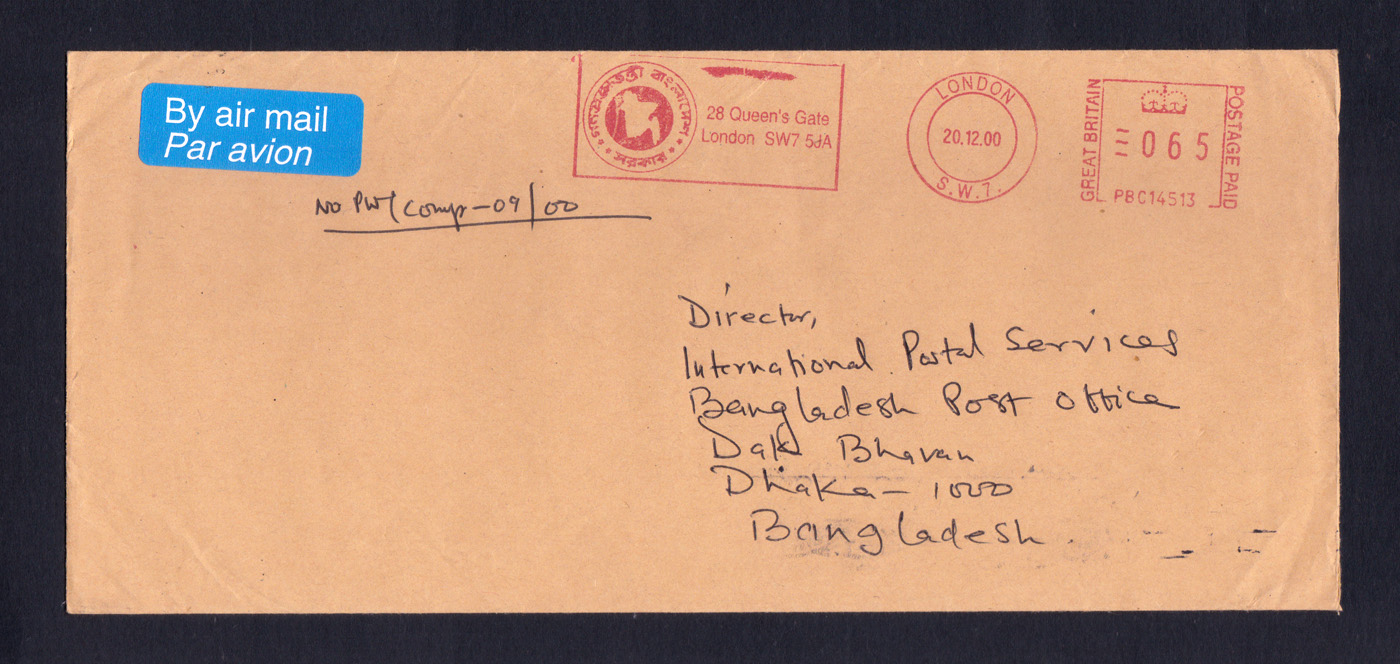 By air mail
Par avion
গণপ্রজাতন্ত্রী বাংলাদেশ
সরকার
28 Queen's Gate
London SW7 5JA
LONDON
20.12.00
S.W.7.
GREAT BRITAIN
065
PBC14513
POSTAGE PAID
No PW/Comp-09/00
Director,
International Postal Services
Bangladesh Post Office
Dak Bhavan
Dhaka-1000
Bangladesh.